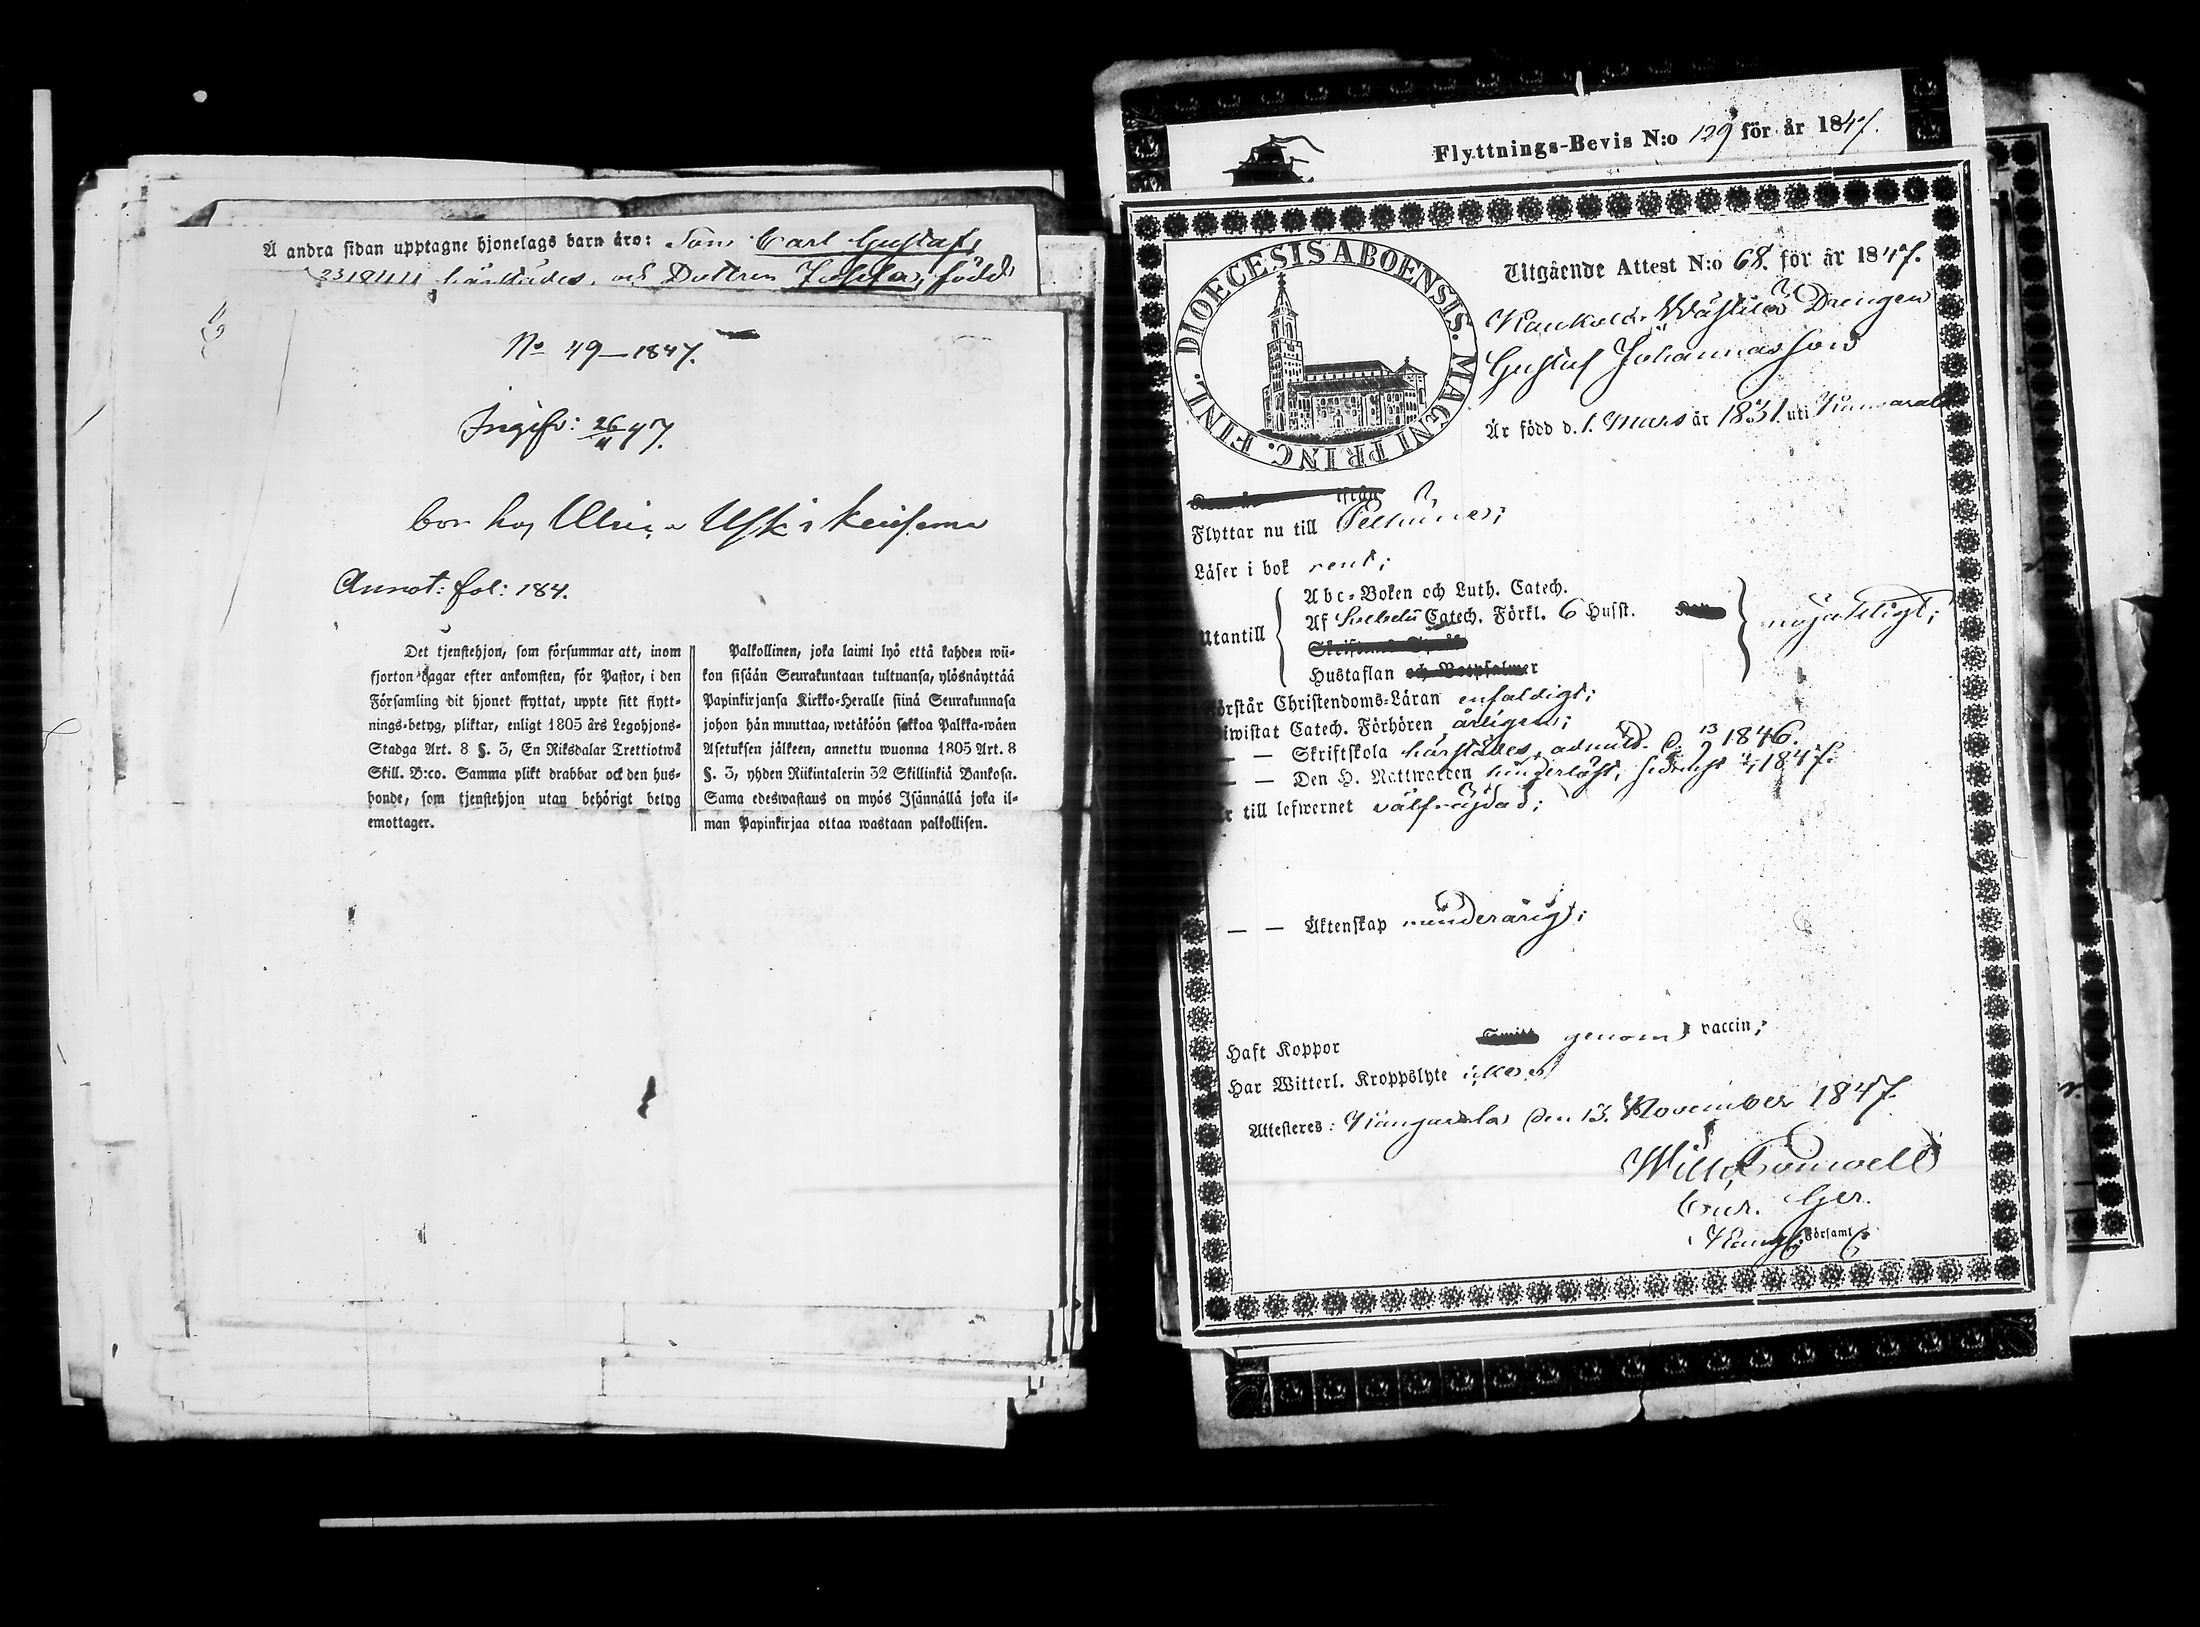 Å andra sidan upptagne hjonelags barn äro: Son Carl Gustaf,
härstädes, och Dottren Josefa, född
No 49—1847.
Ingifv: 26/11 47.
bor hos Uski
Annot: fol: 184.
Det tjenstehjon, som försummar att, inom
fjorton dagar efter ankomsten, för Pastor, i den
Församling dit hjonet flyttat, uppte sitt flytt-
nings-betyg, pliktar, enligt 1805 års Legohjons-
Stadga Art. 8 §. 3, En Riksdalar Trettiotwå
Skill. B:co. Samma plikt drabbar ock den hus-
bonde, som tjenstehjon utan behörigt betyg
emottager.
Palkollinen, joka laimi lyö että kahden wii-
kon sisään Seurakuntaan tultuansa, ylösnäyttää
Papinkirjansa Kirkko-Heralle siinä Seurakunnasa
johon hän muuttaa, wetäköön sakkoa Palkka-wäen
Asetuksen jälkeen, annettu wuonna 1805 Art. 8
§. 3, yhden Riikintalerin 32 Skillinkiä Bankosa.
Sama edeswastaus on myös Isännällä joka il-
man Papinkirjaa ottaa wastaan palkollisen.
Flyttnings-Bevis N:o 129 för år 1847.
DIOECESIS ABOENSIS. MAGNI PRINC. FINL.
Utgående Attest N:o 68. för år 1847.
Drengen
Gustaf Johannasson
Är född d. 1. Mars år 1831. uti
ifrån
Flyttar nu till
Läser i bok rent;
Utantill
Abc-Boken och Luth. Catech.
Af Svebelii Catech. Förkl. 6 Husst.
Hustaflan och Botpsalmer
nöjaktigt;
örstår Christendoms-Läran enfaldigt;
iwistat Catech. Förhören årligen;
— — Skriftskola härstädes, admitt. d. 13 1846.
— — Den H. Nattwarden hinderlöst, sednast 1847.
r till lefwernet välfräjdad;
— — Äktenskap minderårig;
Haft Koppor genom vaccin;
Har Witterl. Kroppslyte icke;
Attesteras: Kangasala den 13. November 1847.
Församl